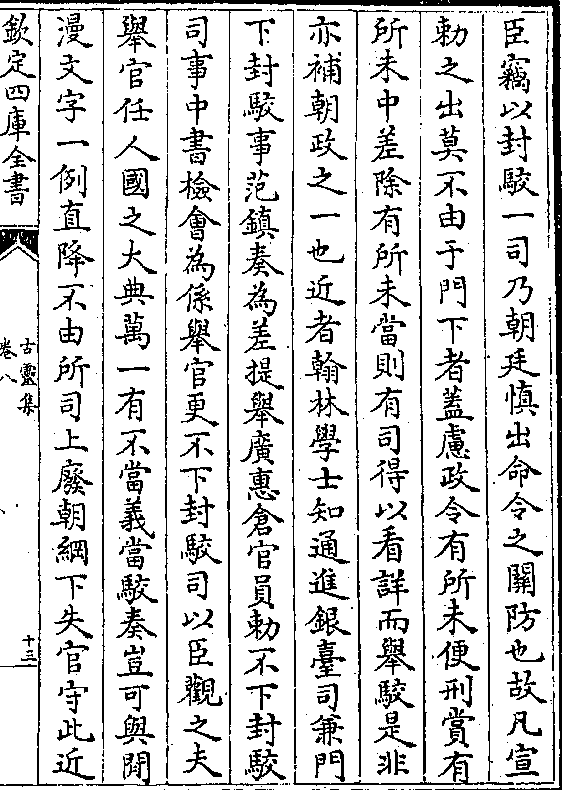 臣竊以封駮一司乃朝廷慎出命令之關防也故凡宣
勅之出莫不由于門下者葢慮政令有所未便刑賞有
所未中差除有所未當則有司得以看詳而舉駮是非
亦補朝政之一也近者翰林學士知通進銀臺司兼門
下封駮事范鎮奏為差提舉廣惠倉官員勅不下封駮
司事中書檢會為係舉官更不下封駮司以臣觀之夫
舉官任人國之大典萬一有不當義當駮奏豈可與閒
漫文字一例直降不由所司上廢朝綱下失官守此近
欽定四庫全書
古靈集
卷八
十三